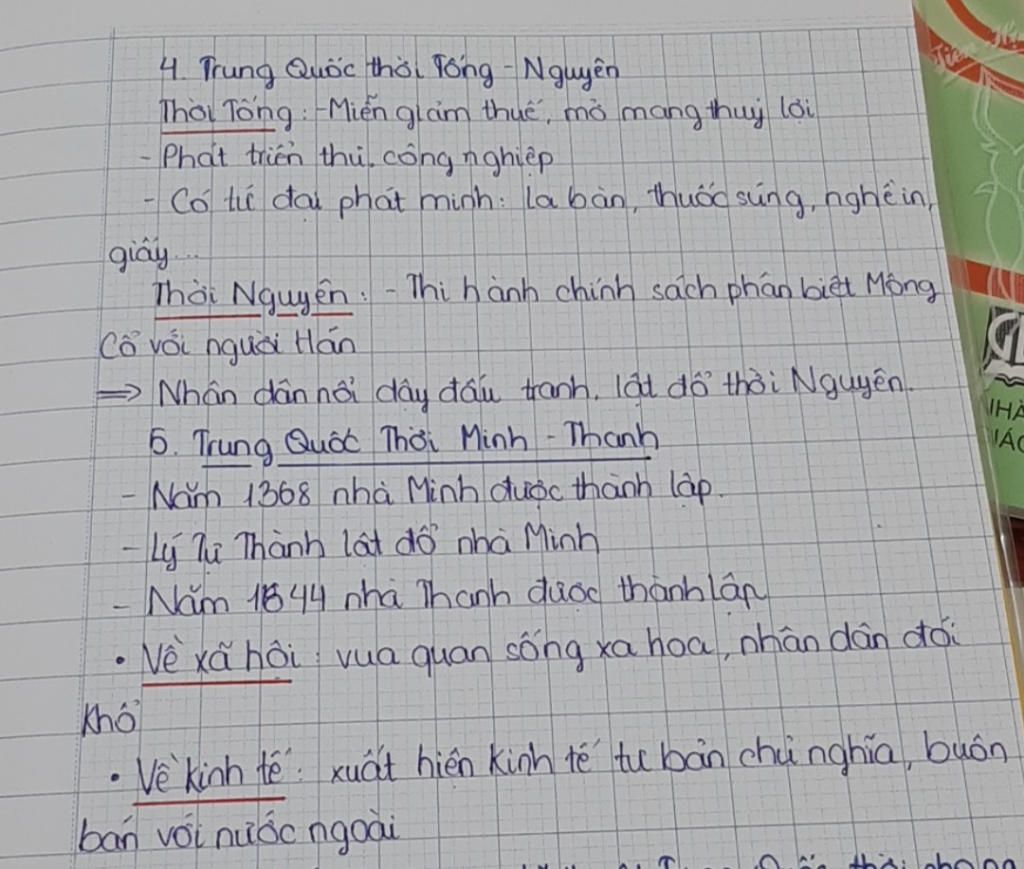 4. Trung Quốc thời Tống - Nguyên
Thời Tống: - Miễn giảm thuế, mở mang thuỷ lợi
- Phát triển thủ công nghiệp
- Có tứ đại phát minh: la bàn, thuốc súng, nghề in,
giấy...
Thời Nguyên: - Thi hành chính sách phân biệt Mông
Cổ với người Hán
=> Nhân dân nổi dậy đấu tranh, lật đổ thời Nguyên.
5. Trung Quốc Thời Minh - Thanh
- Năm 1368 nhà Minh được thành lập.
- Lý Tự Thành lật đổ nhà Minh
- Năm 1644 nhà Thanh được thành lập
• Về xã hội: vua quan sống xa hoa, nhân dân đói
khổ
• Về kinh tế: xuất hiện kinh tế tư bản chủ nghĩa, buôn
bán với nước ngoài